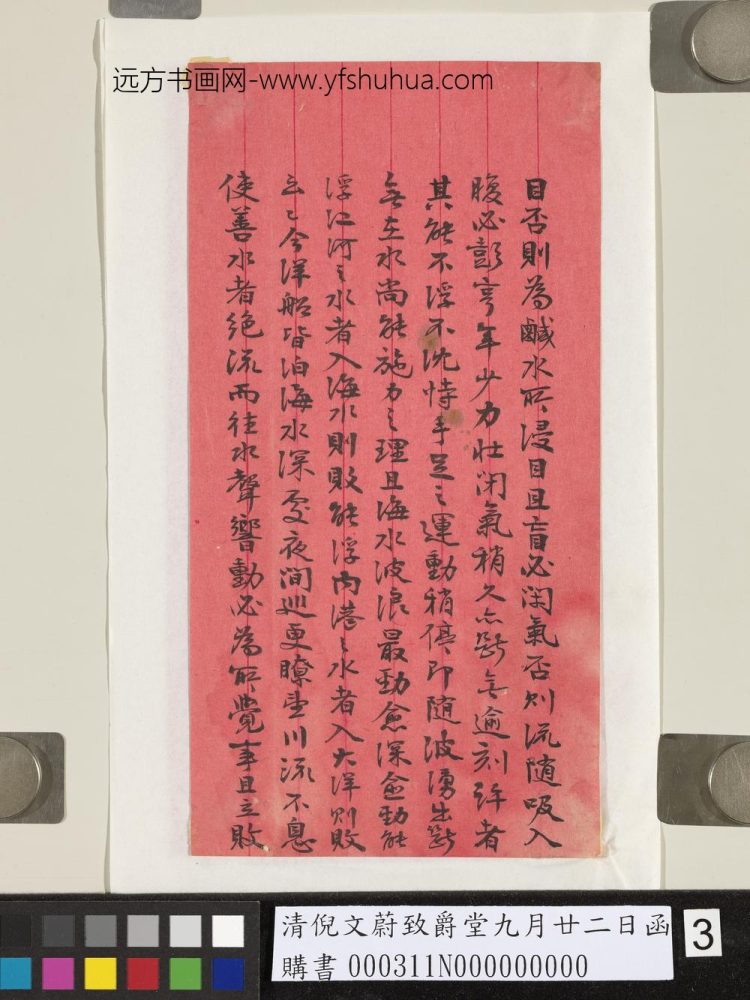 远方书画网-www.yfshuhua.com
目否則為鹹水所浸目且盲必閉氣否則流随吸入
腹必彭亨年少力壯闭氣稍久亦斷無逾刻許者
其能不浮不沈恃手足之運動稍停即随波湧出斷
無在水尚能施力之理且海水波浪最勁愈深愈勁能
浮江河之水者入海水則敗能浮内港之水者入大洋則敗
云云今洋船皆泊海水深處夜间巡更瞭望川流不息
使善水者绝流而往水聲響動必為所覺事且立敗
清倪文蔚致爵堂九月廿二日函
購書 000311N000000000
3